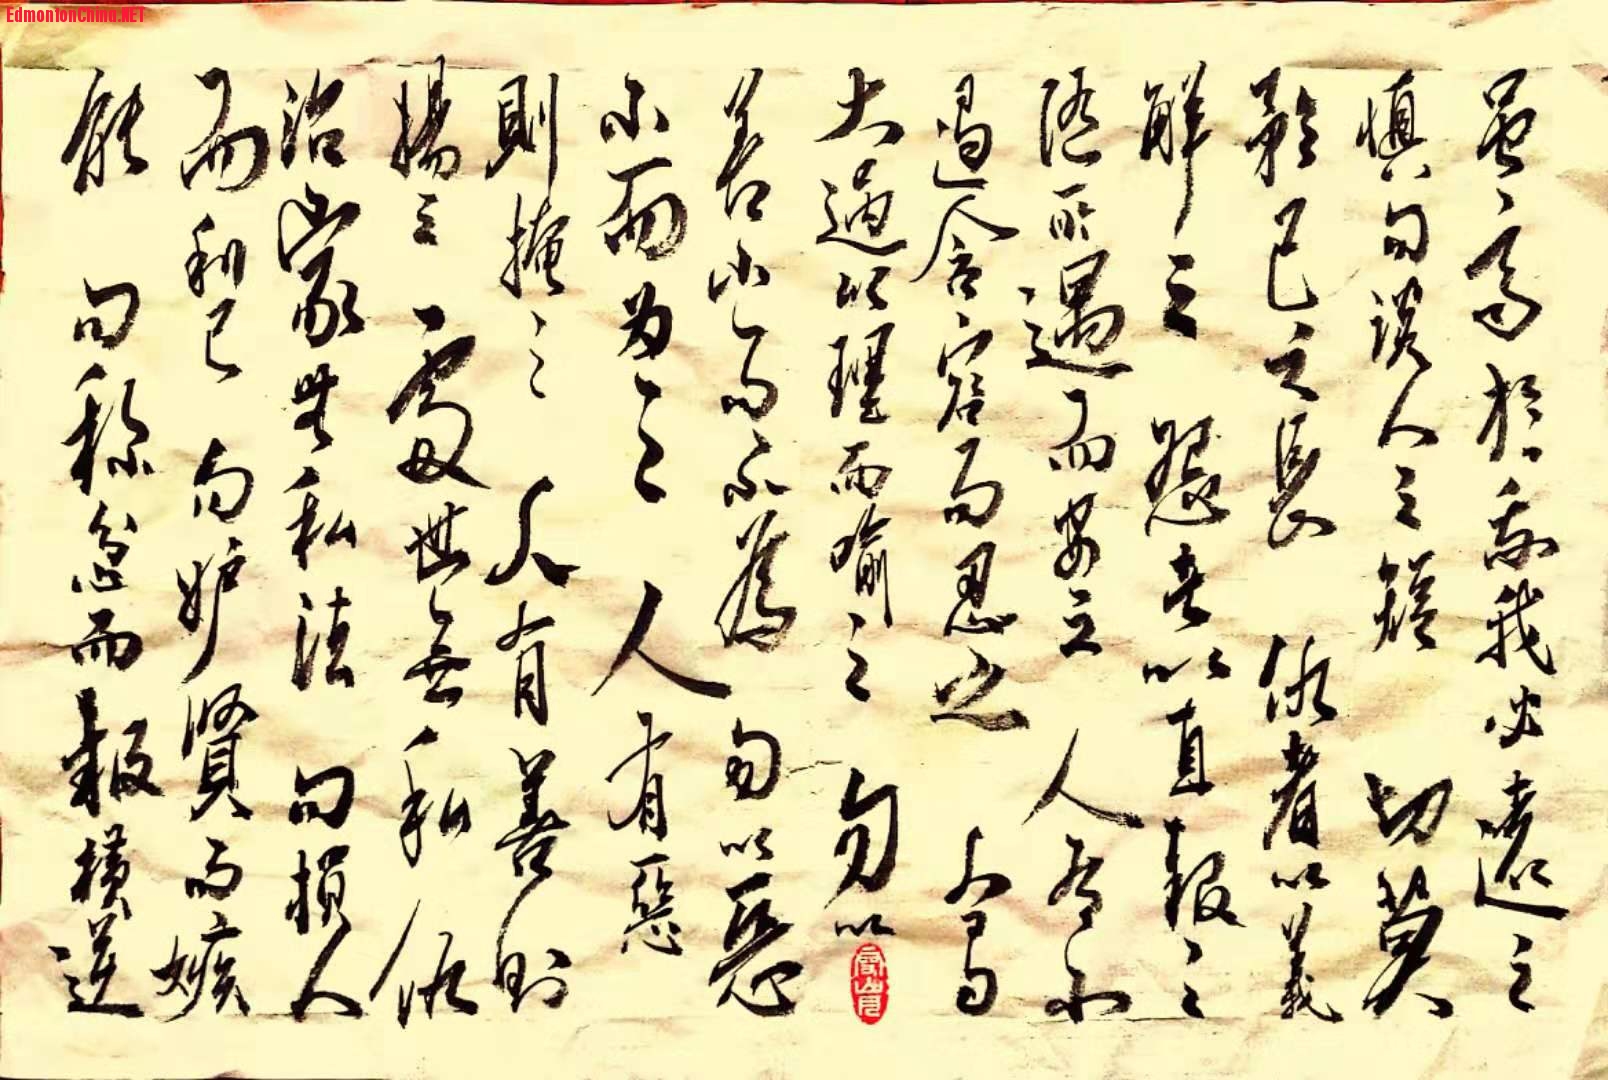 EdmontonChina.NET
虽高於我我必遠之
慎勿談人之短 切莫
矜己之長 仇者以義
解之 怨者以直報之
随所遇而安之 人有小
過含容而忍之 人有
大過以理而喻之 勿以
善小而不為 勿以惡
小而为之 人有惡
則掩之 人有善則
揚之 處世無私仇
治家無私法 勿損人
而利己 勿妒賢而嫉
能 勿称忿而報橫逆